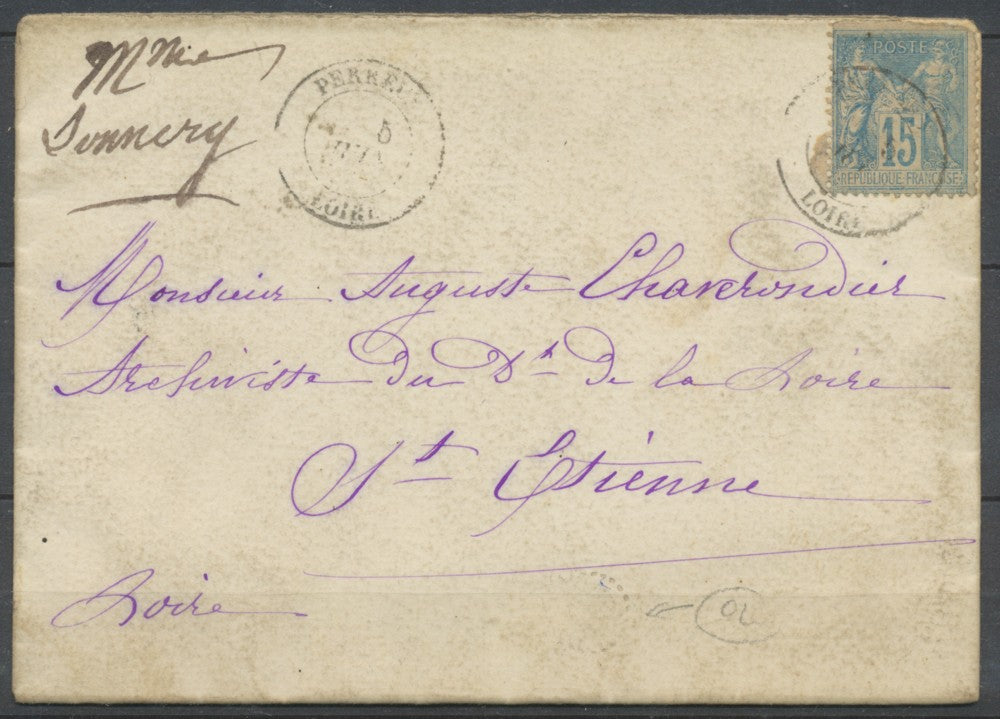 Mme
Sonnery
PERREUX
5
JUIN
LOIRE
POSTE
15
REPUBLIQUE FRANCAISE
LOIRE
Monsieur Auguste Chaverondier
Archiviste du Dt de la Loire
St Etienne
Loire
OL